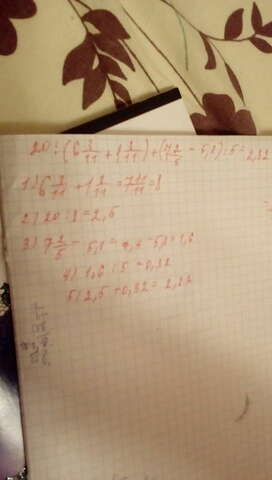 20:(6 3/11 + 1 8/11) + (7 2/5 - 5,8):5 = 2,82
1) 6 3/11 + 1 8/11 = 7 11/11 = 8
2) 20 : 8 = 2,5
3) 7 2/5 - 5,8 = 7,4 - 5,8 = 1,6
4) 1,6 : 5 = 0,32
5) 2,5 + 0,32 = 2,82